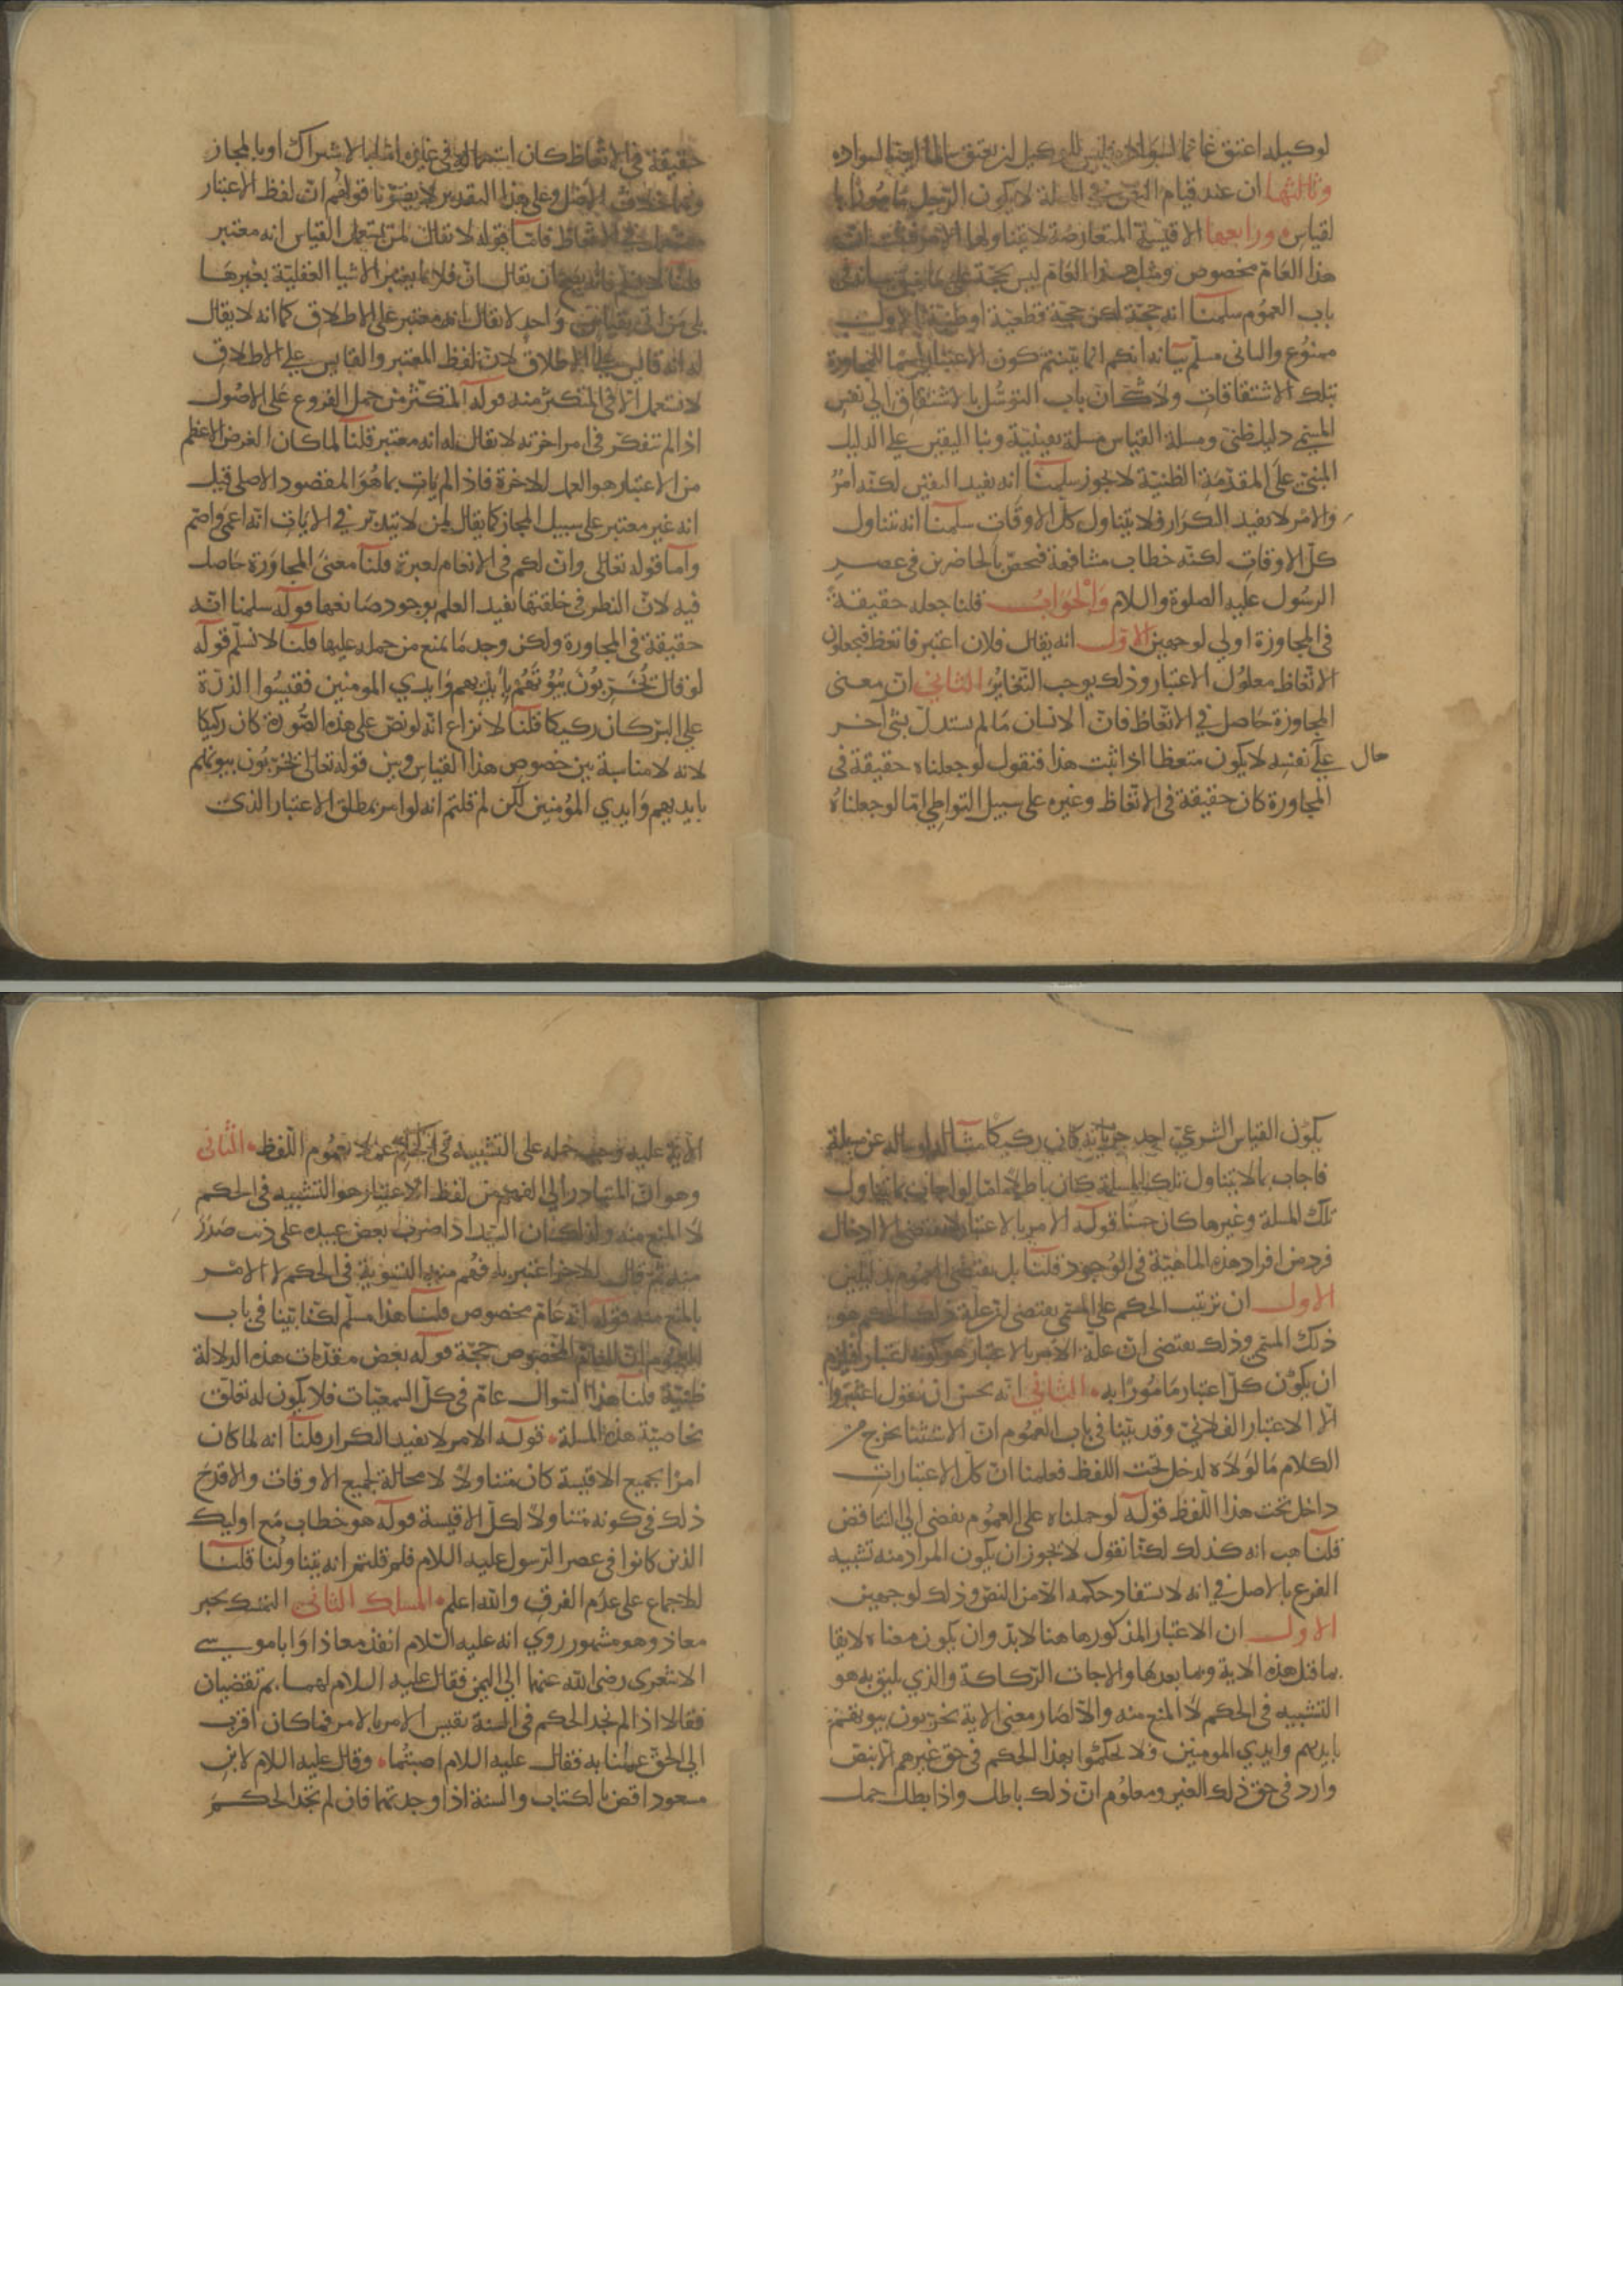 لوكيله اعتق غانما لسواده فليس للوكيل ان يعتق سالما ايضا لسواده
وثالثها ان عند قيام النص في المسلة لا يكون الرجل مامورا با
لقياس ورابعها الاقيسة المتعارضة لا يتناولها الامر فثبت ان
هذا العام مخصوص ومثل هذا العام ليس بحجة على ما سبق بيانه في
باب العموم سلمنا انه حجة لكن حجة قطعية او ظنية الاول
ممنوع والثاني مسلم بيانه انكم انما بينتم كون الاعتبار اسما للمجاوزة
بتلك الاشتقاقات ولا شك ان باب التوسل بالاشتقاق الي نفس
المسمى دليل ظني ومسلة القياس مسلة يقينية وبنا اليقين على الدليل
المبني على المقدمة الظنية لا يجوز سلمنا انه يفيد اليقين لكنه امر
والامر لا يفيد التكرار فلا يتناول كل الاوقات سلمنا انه يتناول
كل الاوقات لكنه خطاب مشافهة فيختص بالحاضرين في عصر
الرسول عليه الصلوة والسلام والجواب قلنا جعله حقيقة
في المجاوزة اولي لوجهين الاول انه يقال فلان اعتبر فاتعظ فيجعلون
الاتعاظ معلول الاعتبار وذلك يوجب التغاير الثاني ان معنى
المجاوزة حاصل في الاتعاظ فان الانسان ما لم يستدل بشي آخر
على نفسه لا يكون متعظا اذا ثبت هذا فنقول لو جعلناه حقيقة في
حال
المجاوزة كان حقيقة في الاتعاظ وغيره على سبيل التواطي اما لو جعلناه
حقيقة في الاتعاظ كان استعماله في غيره اما بالاشتراك او بالمجاز
وهما خلاف الاصل وعلى هذا التقدير لا يضرنا قولهم ان لفظ الاعتبار
مستعمل في الاتعاظ فاما قوله لا يقال لمن يستعمل القياس انه معتبر
قلنا لا نسلم فانه يصح ان يقال ان فلانا يعتبر الاشيا العقلية بغيرها
بلى من اتى بقياس واحد لا يقال انه معتبر على الاطلاق كما انه لا يقال
له انه قايس على الاطلاق لان لفظ المعتبر والقايس على الاطلاق
لا يستعمل الا في المكثر منه قوله المكثر من حمل الفروع على الاصول
اذا لم يتفكر في امر اخرته لا يقال له انه معتبر قلنا لما كان الغرض الاعظم
من الاعتبار هو العمل للاخرة فاذا لم يات بما هو المقصود الاصلي قيل
انه غير معتبر على سبيل المجاز كما يقال لمن لا يتدبر في الايات انه اعمى واصم
واما قوله تعالى وان لكم في الانعام لعبرة قلنا معنى المجاوزة حاصل
فيه لان النظر في خلقتها يفيد العلم بوجود صانعها قوله سلمنا انه
حقيقة في المجاوزة ولكن وجد ما يمنع من حمله عليها قلنا لا نسلم قوله
لو قال يخربون بيوتهم بايديهم وايدي المومنين فقيسوا الذرة
على البر كان ركيكا قلنا لا نزاع انه لو نص على هذه الصورة كان ركيكا
لانه لا مناسبة بين خصوص هذا القياس وبين قوله تعالى يخربون بيوتهم
بايديهم وايدي المؤمنين لكن لم قلتم انه لو امر بمطلق الاعتبار الذي
يكون القياس الشرعي احد جزياته كان ركيكا مثاله لو ساله عن مسلة
فاجاب بما لا يتناول تلك المسلة كان باطلا اما لو اجاب بما يتناول
تلك المسلة وغيرها كان حسنا قوله الامر بالاعتبار لا يقتضي الا ادخال
فرد من افراد هذه الماهية في الوجود قلنا بل يقتضي العموم بدليلين
الاول ان ترتيب الحكم على المسمى يقتضي ان علة ذلك الحكم هو
ذلك المسمى وذلك يقتضي ان علة الامر بالاعتبار هو كونه اعتبارا فلزم
ان يكون كل اعتبار مامورا به الثاني انه يحسن ان نقول اعتبروا
الا الاعتبار الفلاني وقد بينا في باب العموم ان الاستثنا يخرج من
الكلام ما لولاه لدخل تحت اللفظ فعلمنا ان كل الاعتبارات
داخل تحت هذا اللفظ قوله لو حملناه على العموم يفضى الي التناقض
قلنا هب انه كذلك لكنا نقول لا يجوز ان يكون المراد منه تشبيه
الفرع بالاصل في انه لا يستفاد حكمه الا من النص وذلك لوجهين
الاول ان الاعتبار المذكور هاهنا لا بد وان يكون معناه لايقا
بما قبل هذه الاية وبما بعدها والا جات الركاكة والذي يليق به هو
التشبيه في الحكم لا المنع منه والا لصار معنى الاية يخربون بيوتهم
بايديهم وايدي المومنين فلا تحكموا بهذا الحكم في حق غيرهم الا بنص
وارد في حق ذلك الغير ومعلوم ان ذلك باطل واذا بطل حمل
الاية عليه وجب حمله على التشبيه في الحكم عملا بعموم اللفظ الثاني
وهو ان المتبادر الي الفهم من لفظ الاعتبار هو التشبيه في الحكم
لا المنع منه ولذلك ان السيد اذا ضرب بعض عبيده على ذنب صدر
منه ثم قال للاخر اعتبر به فهم منه التسوية في الحكم لا الامر
بالمنع منه قوله انه عام مخصوص قلنا هذا مسلم لكنا بينا في باب
العموم ان العام المخصوص حجة قوله بعض مقدمات هذه الدلالة
ظنية قلنا هذا السوال عام في كل السمعيات فلا يكون له تعلق
بخاصية هذه المسلة قوله الامر لا يفيد التكرار قلنا انه لما كان
امرا بجميع الاقيسة كان متناولا لا محالة لجميع الاوقات والا قدح
ذلك في كونه متناولا لكل الاقيسة قوله هو خطاب مع اوليك
الذين كانوا في عصر الرسول عليه السلام فلم قلتم انه يتناولنا قلنا
للاجماع على عدم الفرق والله اعلم المسلك الثاني التمسك بخبر
معاذ وهو مشهور روي انه عليه السلام انفذ معاذا وابا موسى
الاشعري رضي الله عنهما الي اليمن فقال عليه السلام لهما بم تقضيان
فقالا اذا لم نجد الحكم في السنة نقيس الامر بالامر فما كان اقرب
الي الحق عملنا به فقال عليه السلام اصبتما وقال عليه السلام لابن
مسعود اقض بالكتاب والسنة اذا وجدتهما فان لم تجد الحكم